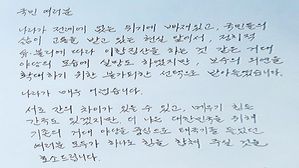 국민 여러분
나라가 전례에 없는 위기에 빠져있고, 국민들의
삶이 고통을 받고 있는 현실 앞에서, 정치적
유·불리에 따라 이합집산을 하는 것 같은 거대
야당의 모습에 실망도 하였지만, 보수의 외연을
확대하기 위한 불가피한 선택으로 받아들였습니다.
나라가 매우 어렵습니다.
서로 간의 차이가 있을 수 있고, 메우기 힘든
간극도 있겠지만, 더 나은 대한민국을 위해
기존의 거대 야당을 중심으로 태극기를 들었던
여러분 모두가 하나로 힘을 합쳐 주실 것을
호소드립니다.